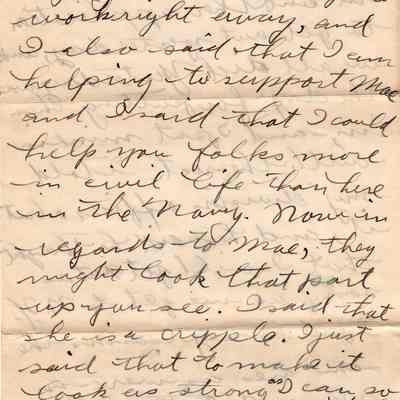 work right away, and
I also said that I am
helping to support Mae
and I said that I could
help you folks more
in civil life than here
in the Navy. Now in
regards to Mae, they
might look that part
up you see. I said that
she is a cripple. I just
said that to make it
look as strong as I can, so